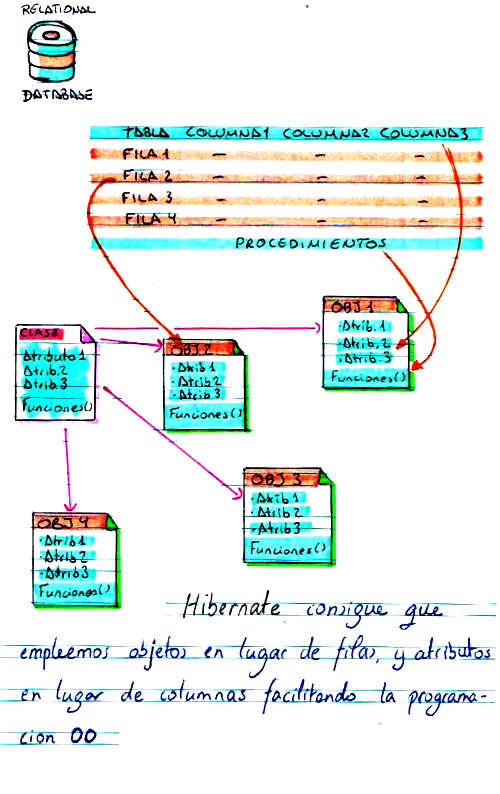 RELATIONAL
DATABASE
TABLA COLUMNA1 COLUMNA2 COLUMNA3
FILA 1 - - -
FILA 2 - - -
FILA 3 - - -
FILA 4 - - -
PROCEDIMIENTOS
CLASE
Atributo1
Atrib.2
Atrib.3
Funciones()
OBJ 2
·Atrib1
·Atrib2
·Atrib3
Funciones()
OBJ 1
·Atrib.1
·Atrib.2
·Atrib.3
Funciones()
OBJ 3
·Atrib1
·Atrib2
·Atrib3
Funciones()
OBJ 4
·Atrib1
·Atrib2
·Atrib3
Funciones()
Hibernate consigue que
empleemos objetos en lugar de filas, y atributos
en lugar de columnas facilitando la programa-
cion OO